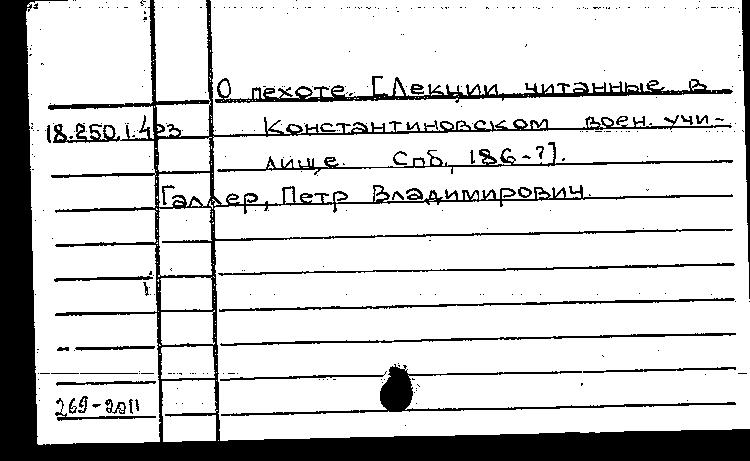 О пехоте. [Лекции, читанные в
18.250.1.423 Константиновском воен. учи-
лище. Спб., 186-?].
Галлер, Петр Владимирович.
269-2011